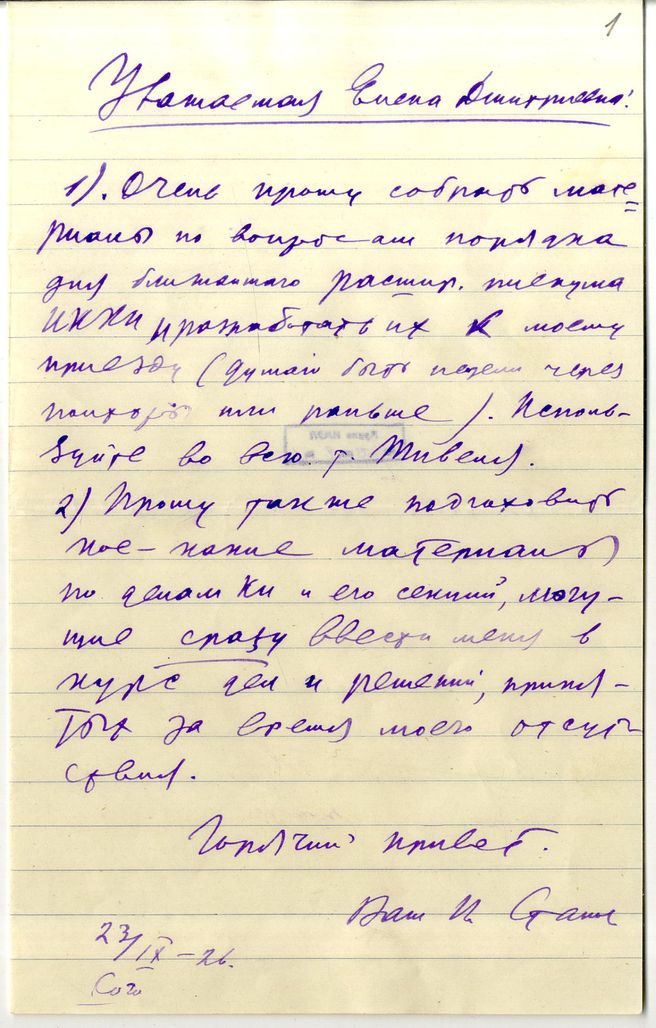 1
Уважаемая Елена Дмитриевна!
1). Очень прошу собрать мате=
риалы по вопросам порядка
дня ближайшего расшир. пленума
ИККИ и проработать их к моему
приезду (думаю быть недели через
полторы или раньше). Исполь-
зуйте во всю т. Тивеля.
2) Прошу также подготовить
кое-какие материалы
по делам КИ и его секций, могу-
щие сразу ввести меня в
курс дел и решений, приня-
тых за время моего отсут-
ствия.
Горячий привет.
Ваш И. Сталин
23/IX-26.
Сочи